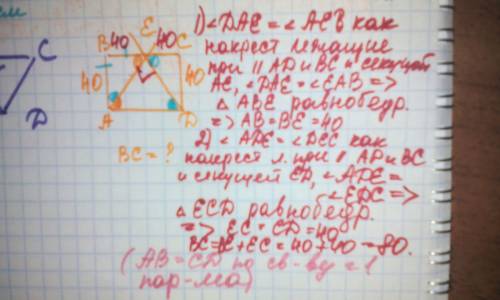 C
D
E
B 40 40 C
40 40
A D
BC = ?
1) ∠DAE = ∠AEB как
накрест лежащие
при || AD и BC и секущей
AE, ∠DAE = ∠EAB =>
△ ABE равнобедр.
=> AB = BE = 40
2) ∠ ADE = ∠DEC как
накрест л. при || AD и BC
и секущей ED, ∠ADE =
∠EDC =>
△ ECD равнобедр.
=> EC = CD = 40
BC = + EC = 40 + 40 = 80.
(AB = CD по св-ву
пар-ма)